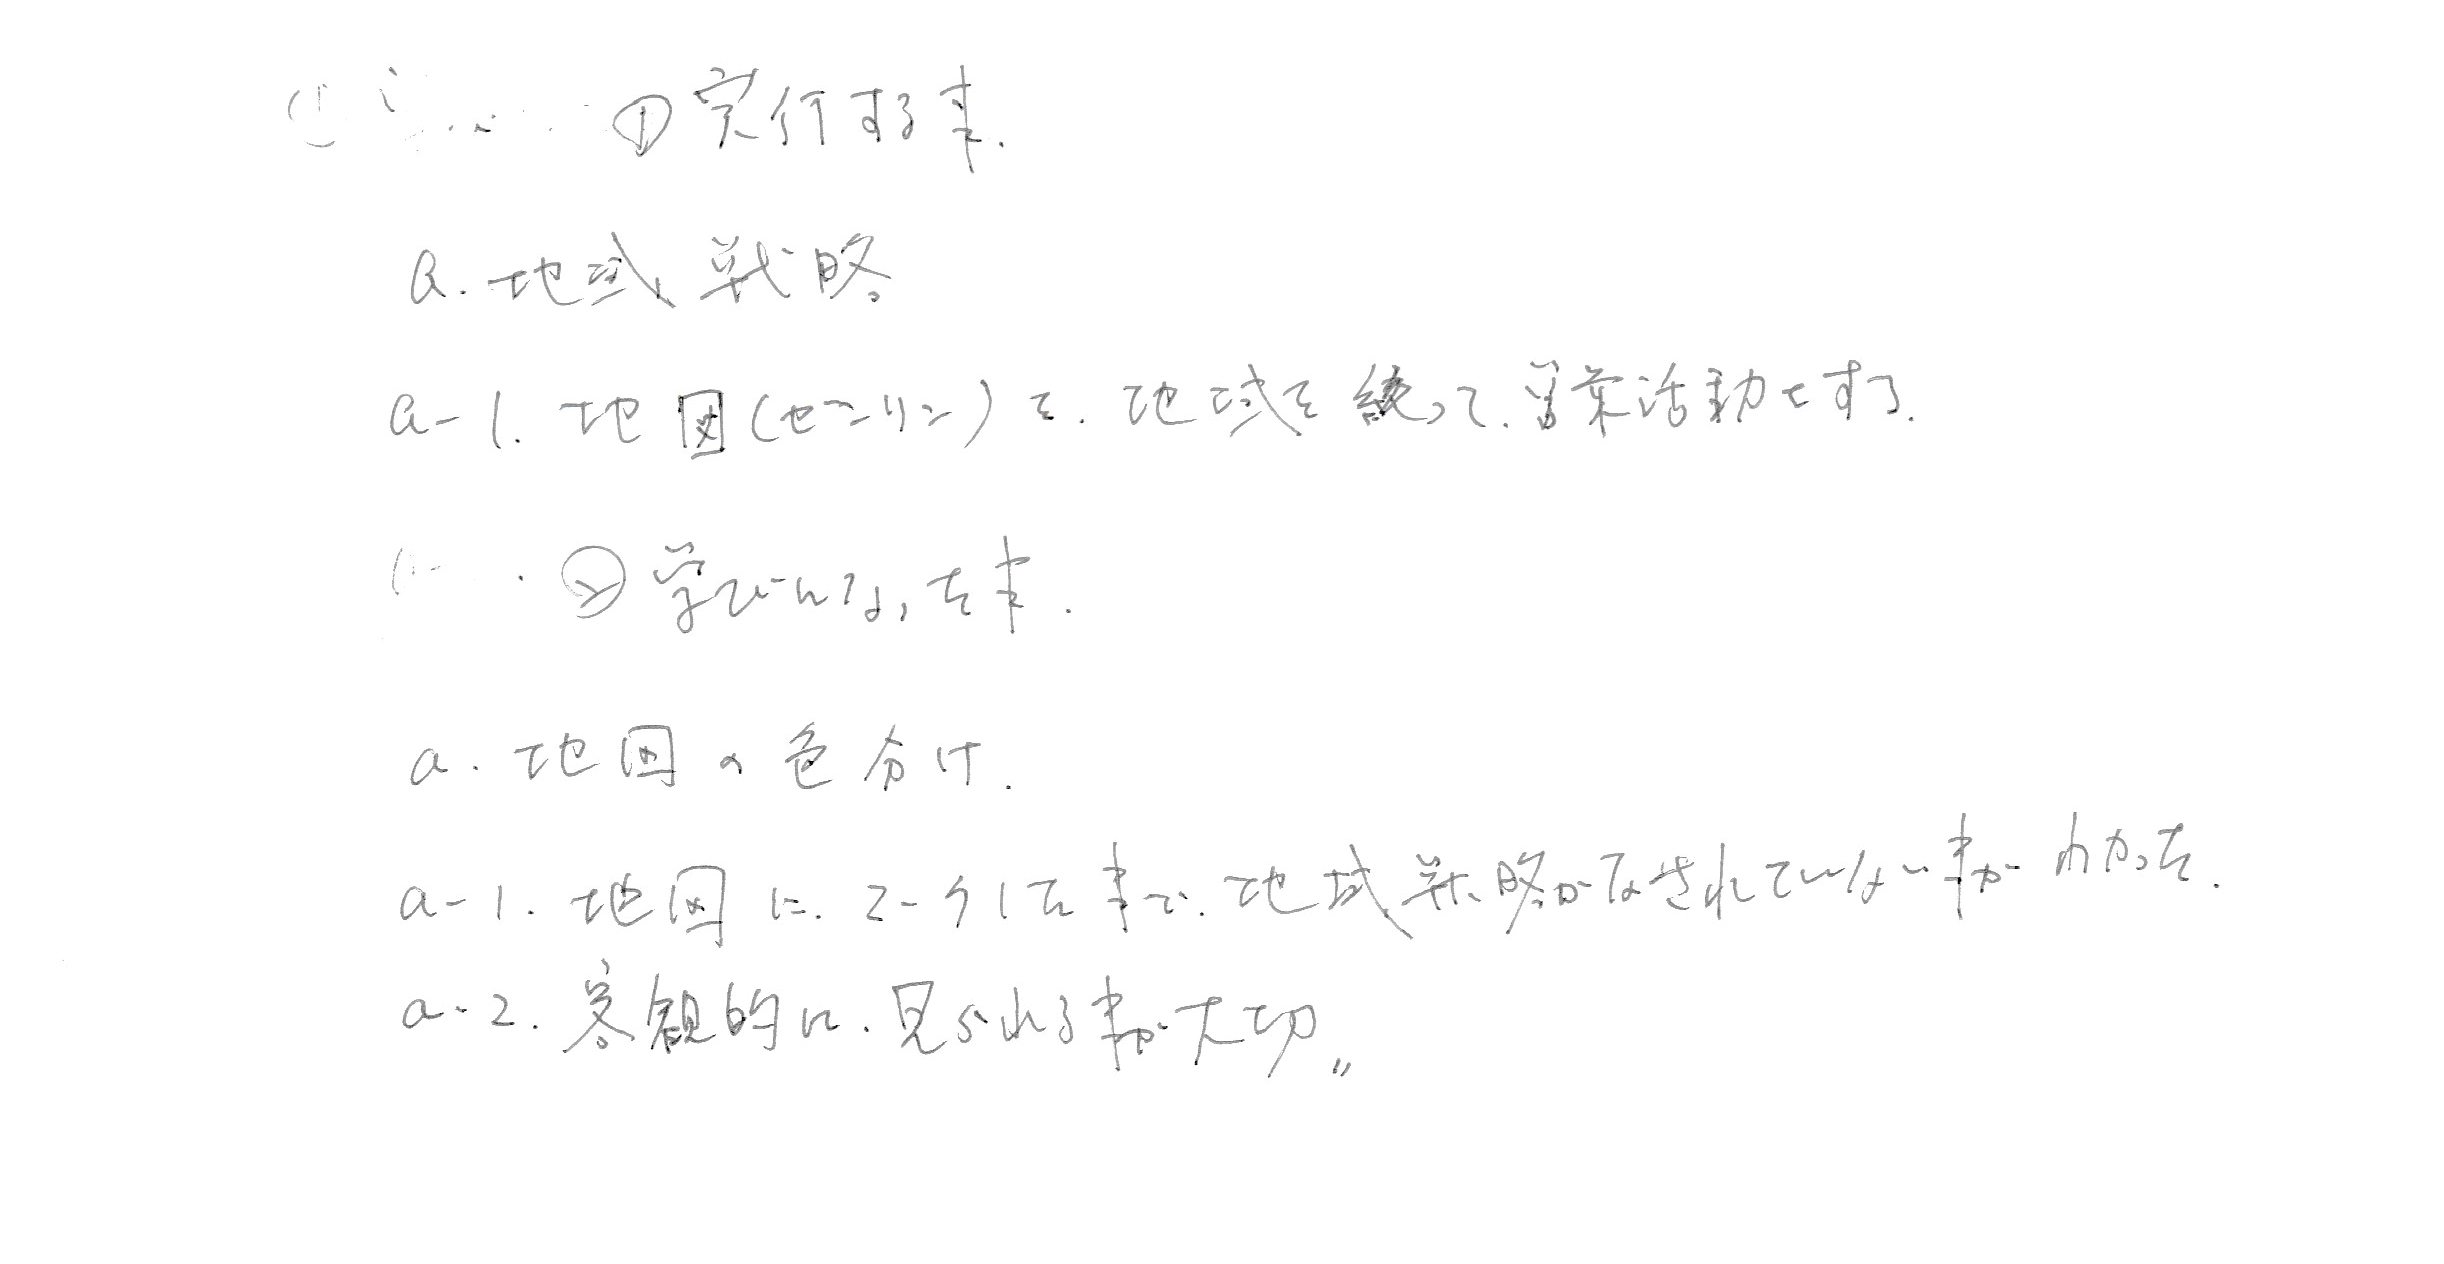 ① 実行する事.
a. 地域戦略
a-1. 地図(ゼンリン)で. 地域を絞って. 営業活動をする.
② 学びになった事.
a. 地図の色分け.
a-1. 地図に. マークした事で. 地域戦略がなされていない事が わかった.
a-2. 客観的に. 見られる事が大切〃